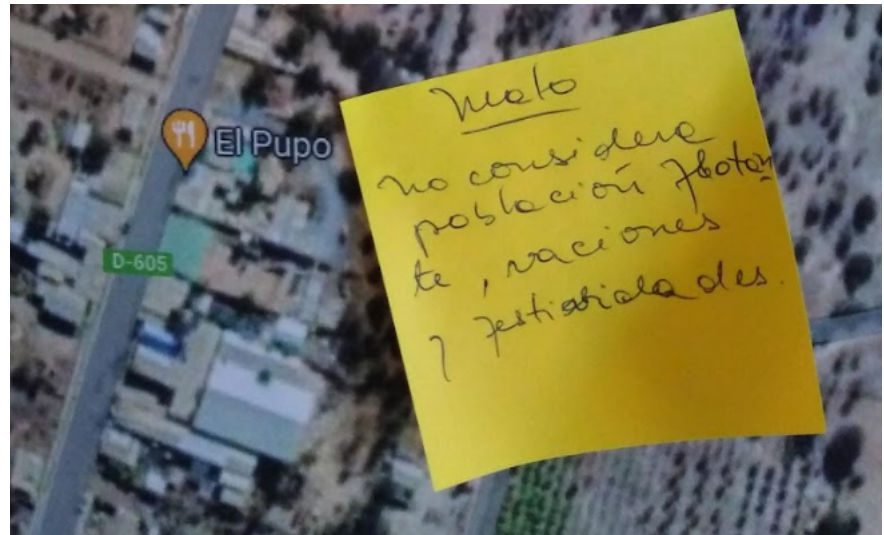 El Pupo
D-605
Malo
no considera
población flotan
te, vaciones
y festividades.